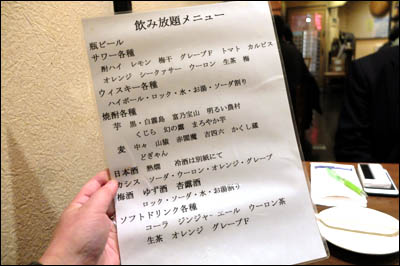 飲み放題メニュー
瓶ビール
サワー各種
酎ハイ レモン 梅干 グレープF トマト カルピス
オレンジ シークァサー ウーロン 生茶 梅
ウィスキー各種
ハイボール・ロック・水・お湯・ソーダ割り
焼酎各種
芋 黒・白霧島 富乃宝山 明るい農村
くじら 幻の露 まろやか芋
麦 中々 山猿 赤閻魔 吉四六 かくし蔵
とぎゃん
日本酒 熱燗 冷酒は別紙にて
カシス ソーダ・ウーロン・オレンジ・グレープ
梅酒 ゆず酒 杏露酒
ロック・ソーダ・水・お湯割り
ソフトドリンク各種
コーラ ジンジャーエール ウーロン茶
生茶 オレンジ グレープF